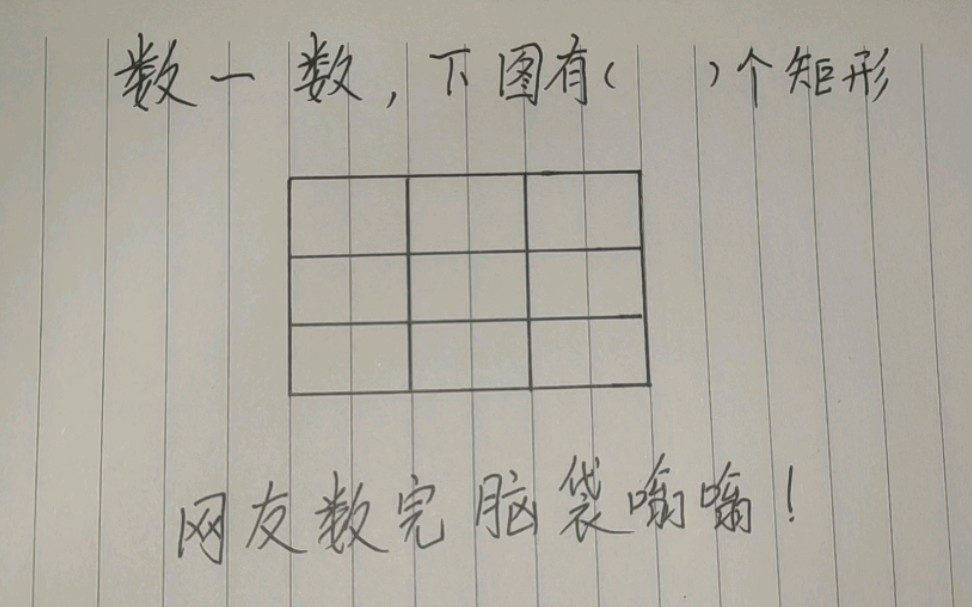 数一数,下图有( )个矩形
网友数完脑袋嗡嗡!